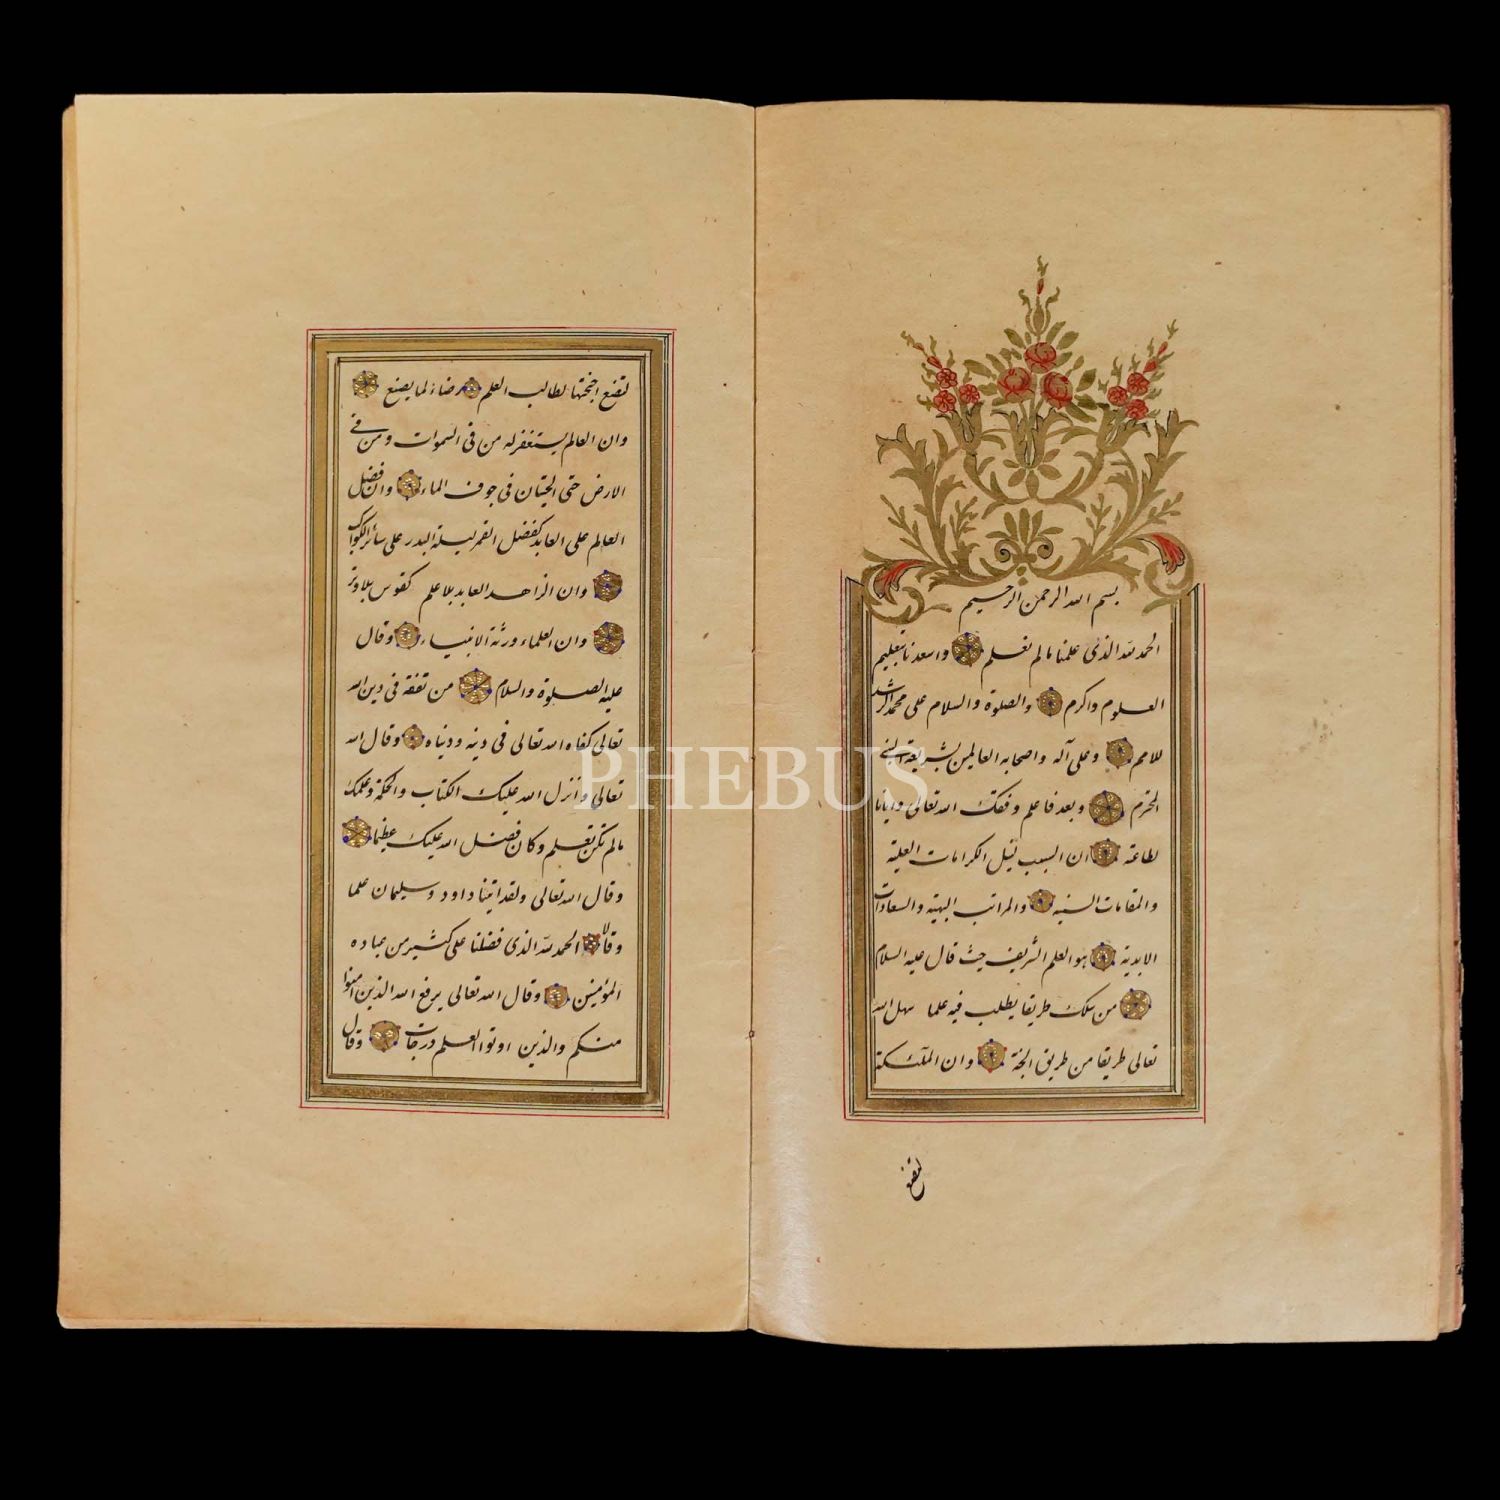 بسم الله الرحمن الرحيم
الحمد لله الذى علمنا ما لم نعلم واسعدنا بتعليم
العلوم واكرم والصلوة والسلام على محمد المرشد
للامم وعلى آله واصحابه العالمين بشريعة النبى
المحترم وبعد فاعلم وفقك الله تعالى وايانا
لطاعته ان السبب لنيل الكرامات العلية
والمقامات السنيه والمراتب البهية والسعادات
الابدية هو العلم الشريف حيث قال عليه السلام
من سلك طريقا يطلب فيه علما سهل الله
تعالى طريقا من طريق الجنة وان الملئكة
لتضع
لتضع اجنحتها لطالب العلم رضاء لما يصنع
وان العالم يستغفر له من فى السموات ومن فى
الارض حتى الحيتان فى جوف الماء وان فضل
العالم على العابد كفضل القمر ليلة البدر على سائر الكواكب
وان الزاهد العابد بلا علم كقوس بلا وتر
وان العلماء ورثة الانبياء وقال
عليه الصلوة والسلام من تفقه فى دين الله
تعالى كفاه الله تعالى فى دينه ودنياه وقال الله
تعالى وانزل الله عليك الكتاب والحكمة وعلمك
ما لم تكن تعلم وكان فضل الله عليك عظيما
وقال الله تعالى ولقد اتينا داود وسليمان علما
وقالا الحمد لله الذى فضلنا على كثير من عباده
المؤمنين وقال الله تعالى يرفع الله الذين امنوا
منكم والذين اوتوا العلم درجات وقال
PHEBUS